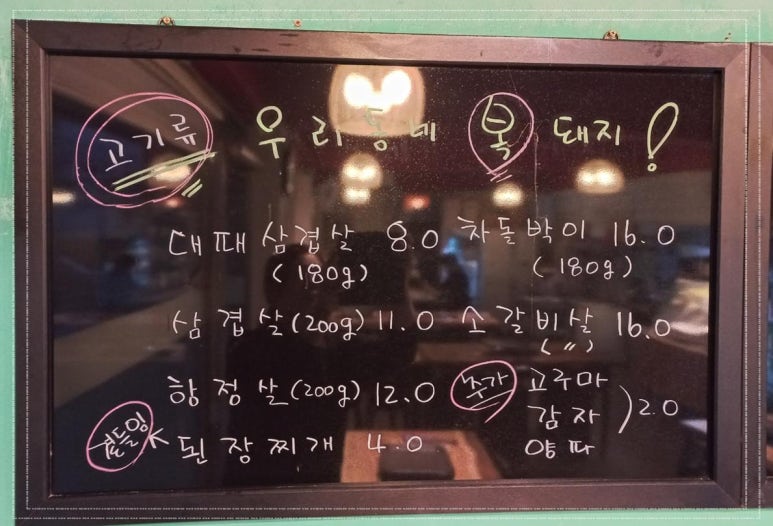 고기류 우리동네 복 돼지!
대패삼겹살 8.0
(180g)
삼겹살(200g) 11.0
항정살(200g) 12.0
곁들임
된장찌개 4.0
차돌박이 16.0
(180g)
소갈비살 16.0
( 〃 )
추가
고구마
감자
양파
)2.0